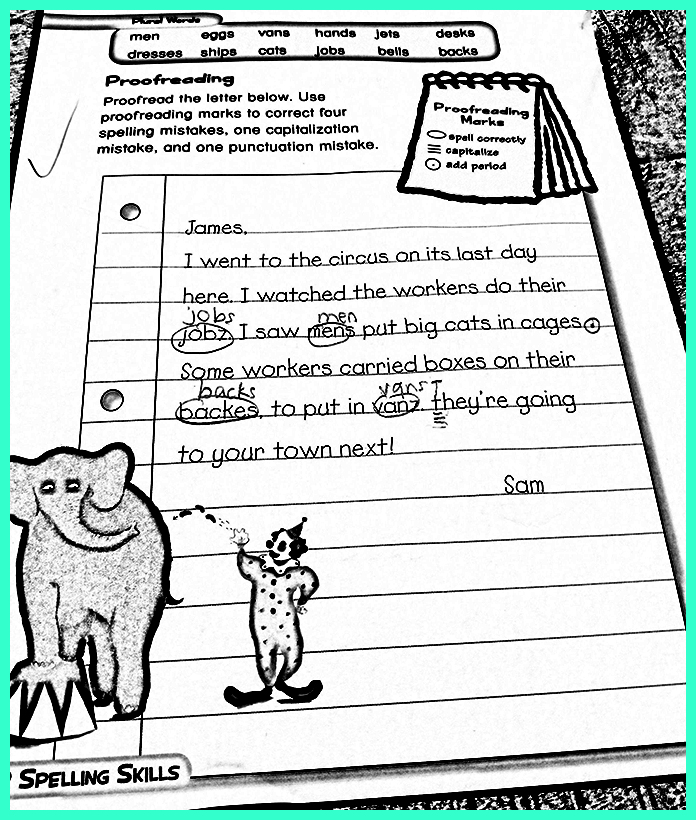 Plural Words
men eggs vans hands jets desks
dresses ships cats jobs bells backs
Proofreading
Proofread the letter below. Use
proofreading marks to correct four
spelling mistakes, one capitalization
mistake, and one punctuation mistake.
Proofreading
Marks
spell correctly
capitalize
add period
James,
I went to the circus on its last day
here. I watched the workers do their
jobs men
jobz. I saw mens put big cats in cages
Some workers carried boxes on their
backs vans T
backes, to put in vanz. they're going
to your town next!
Sam
SPELLING SKILLS